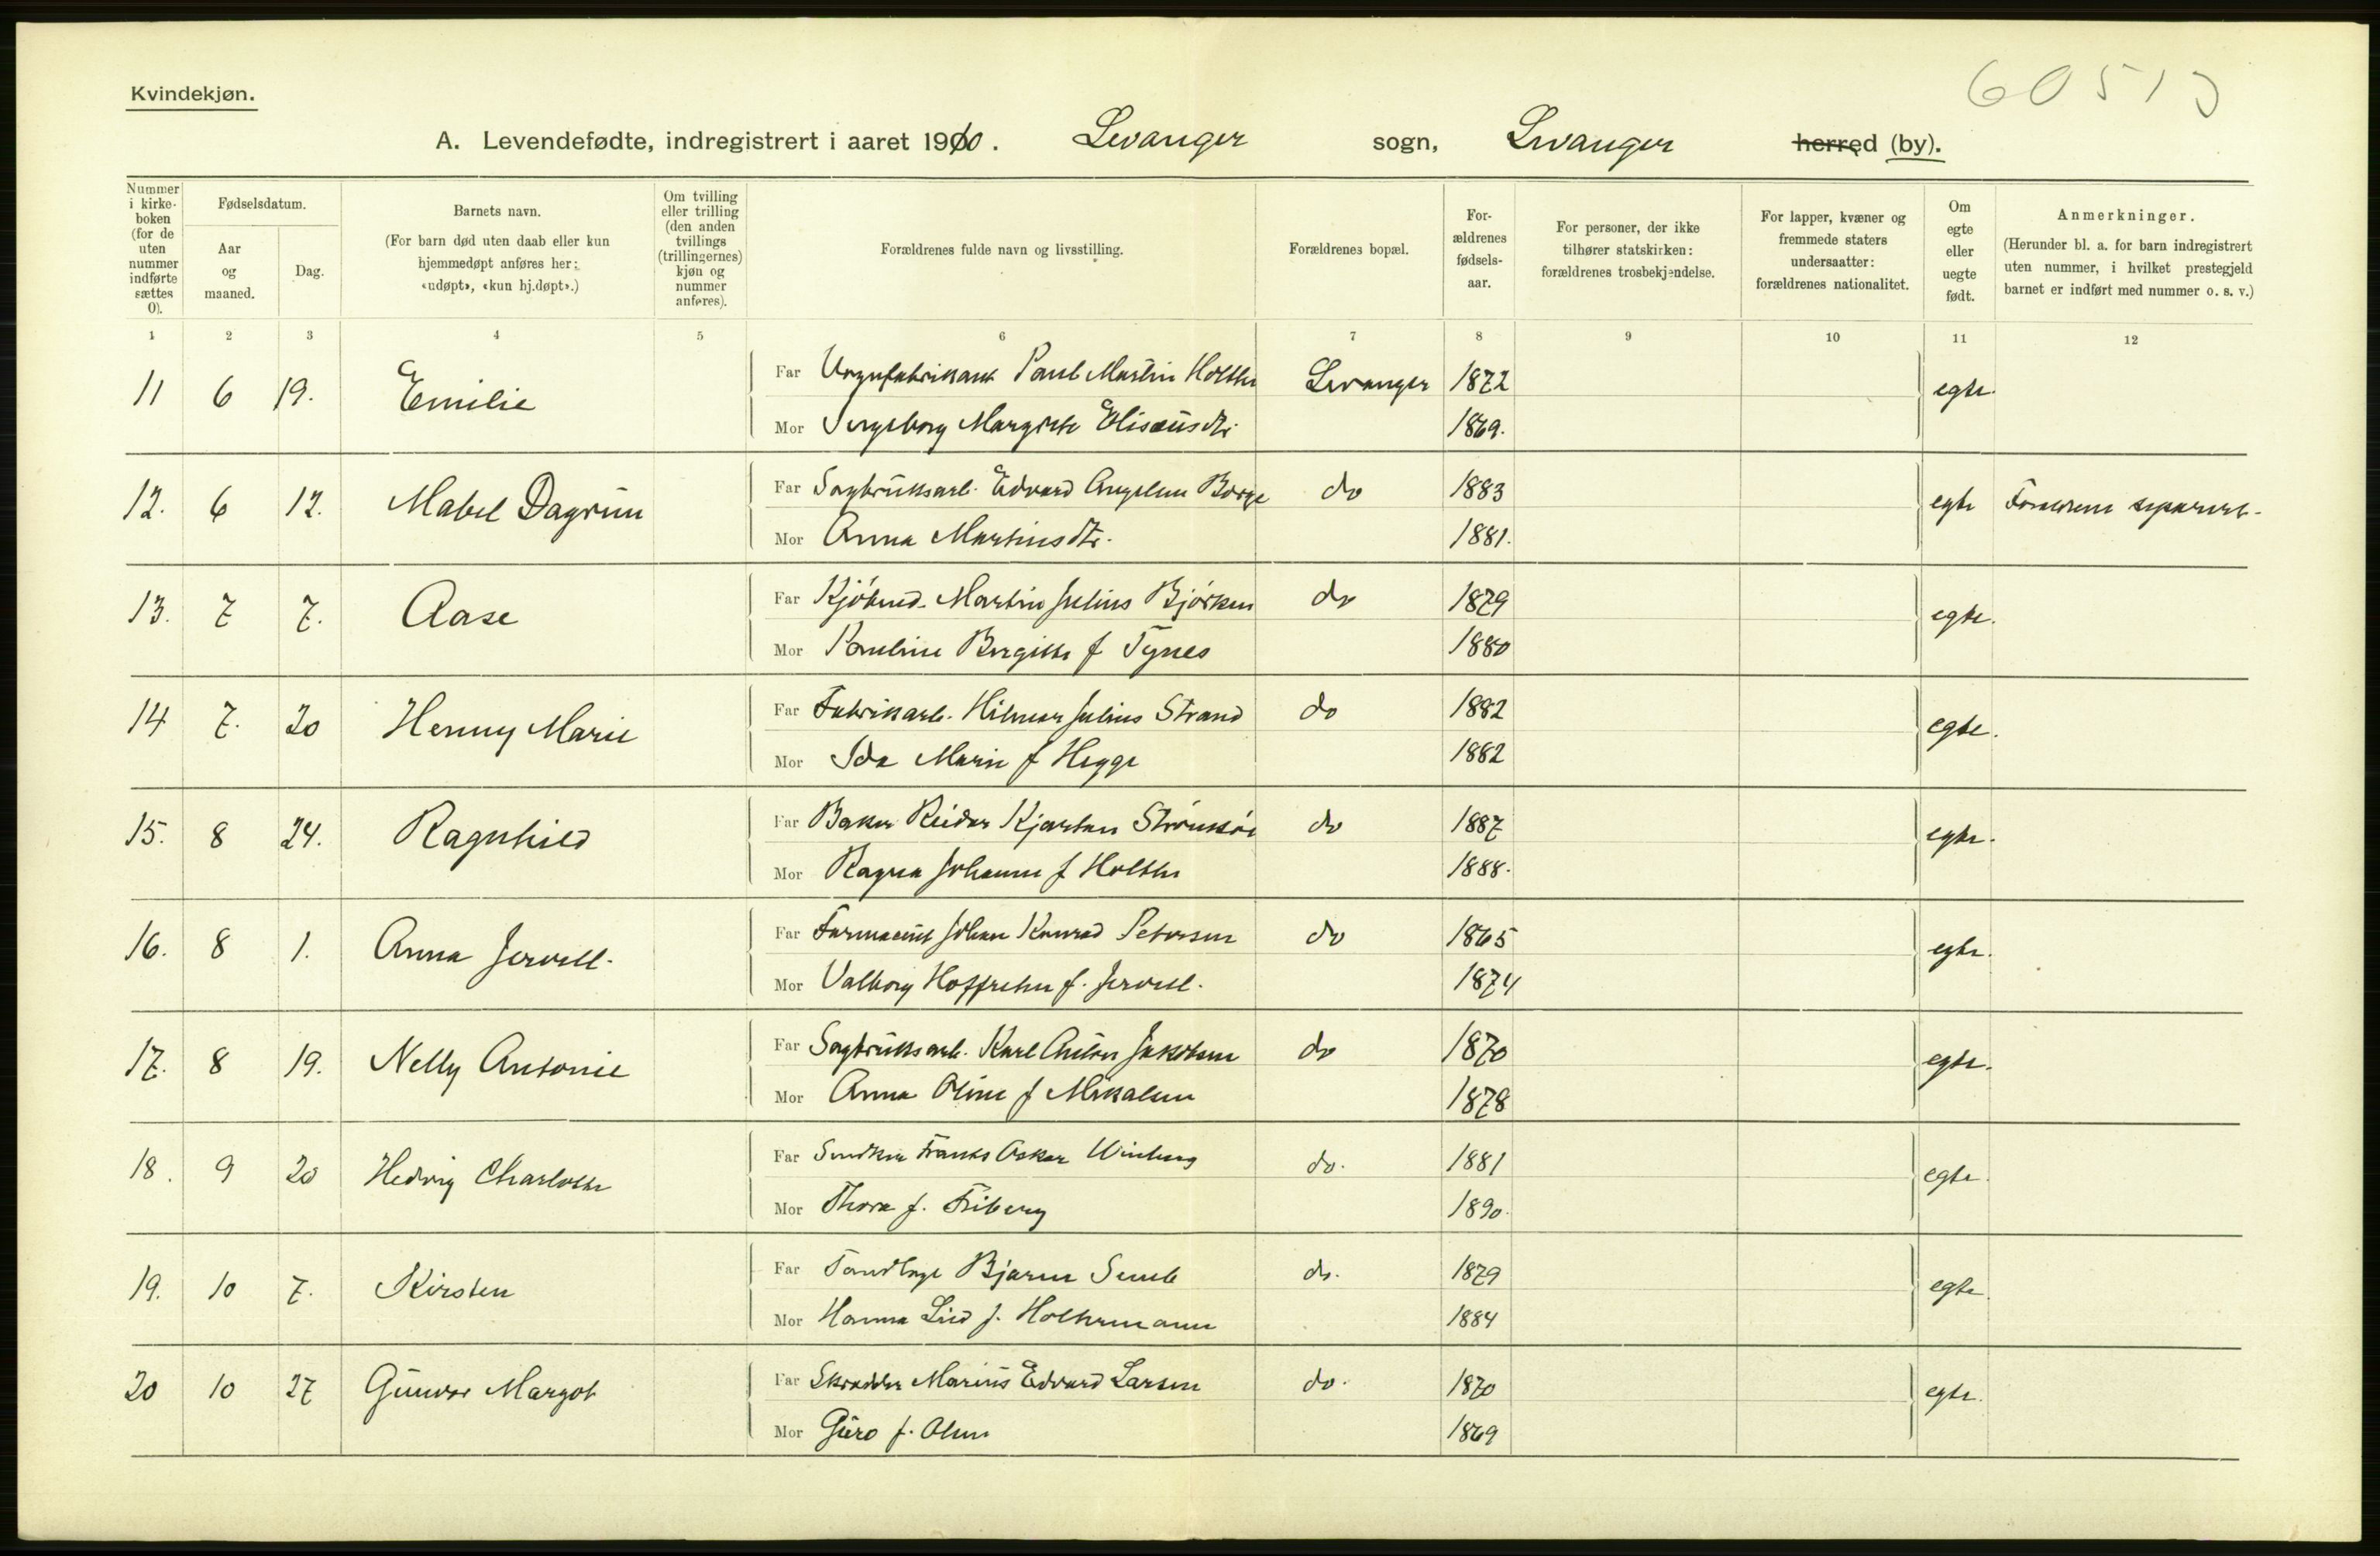 60513
Kvindekjøn.
A. Levendefødte, indregistrert i aaret 1910. Levanger sogn, Levanger herred (by).
Nummer i kirkeboken (for de uten nummer indførte sættes 0).
Fødselsdatum.
Aar og maaned.
Dag.
Barnets navn.
(For barn død uten daab eller kun hjemmedøpt anføres her: «udøpt», «kun hj.døpt».)
Om tvilling eller trilling (den anden tvillings (trillingernes) kjøn og nummer anføres).
Forældrenes fulde navn og livsstilling.
Forældrenes bopæl.
Forældrenes fødselsaar.
For personer, der ikke tilhører statskirken: forældrenes trosbekjendelse.
For lapper, kvæner og fremmede staters undersaatter: forældrenes nationalitet.
Om egte eller uegte født.
Anmerkninger.
(Herunder bl. a. for barn indregistrert uten nummer, i hvilket prestegjeld barnet er indført med nummer o. s. v.)
1 2 3 4 5 6 7 8 9 10 11 12
11 6 19. Emilie Far Paul Martin Holthe Levanger 1872 egte.
Mor Ingeborg Margrete Elisæusdtr 1869.
12. 6 12. Mabel Dagrun Far Sagbruksarb. Edvard Angelsen Borge do 1883 egte Forældrene separert.
Mor Anna Martinsdtr. 1881.
13. 7 7. Aase Far Kjøbmd. Martin Julius Bjørken do 1879 egte.
Mor Pauline Bergitte f Tynes 1880
14 7. 20 Henny Marie Far Fabrikarb. Hilmar Julius Strand do 1882 egte.
Mor Ida Marie f Hegge 1882
15. 8 24. Ragnhild Far Baker Reidar Kjartan do 1887 egte.
Mor Ragna Johanne f Holthe 1888.
16. 8 1. Anna Jervell. Far Farmaceut Johan Konrad Petersen do 1865 egte.
Mor Valborg f. Jervell. 1874
17. 8 19. Nelly Antonie Far Sagbruksarb. Karl Anton Jakobsen do 1870 egte.
Mor Anna Oline f Mikalsen 1878
18. 9 20 Hedvig Charlotte Far Frants Oskar Winberg do. 1881 egte.
Mor Thora f. Friberg 1890.
19. 10 7. Kirsten Far Tandlæge Bjarne Semb do. 1879 egte.
Mor Hanna Lied f. Holtermann 1884
20 10 27 Gunvor Margot Far Skrædder Marius Edvard Larsen do. 1870 egte.
Mor Guro f. Olsen 1869